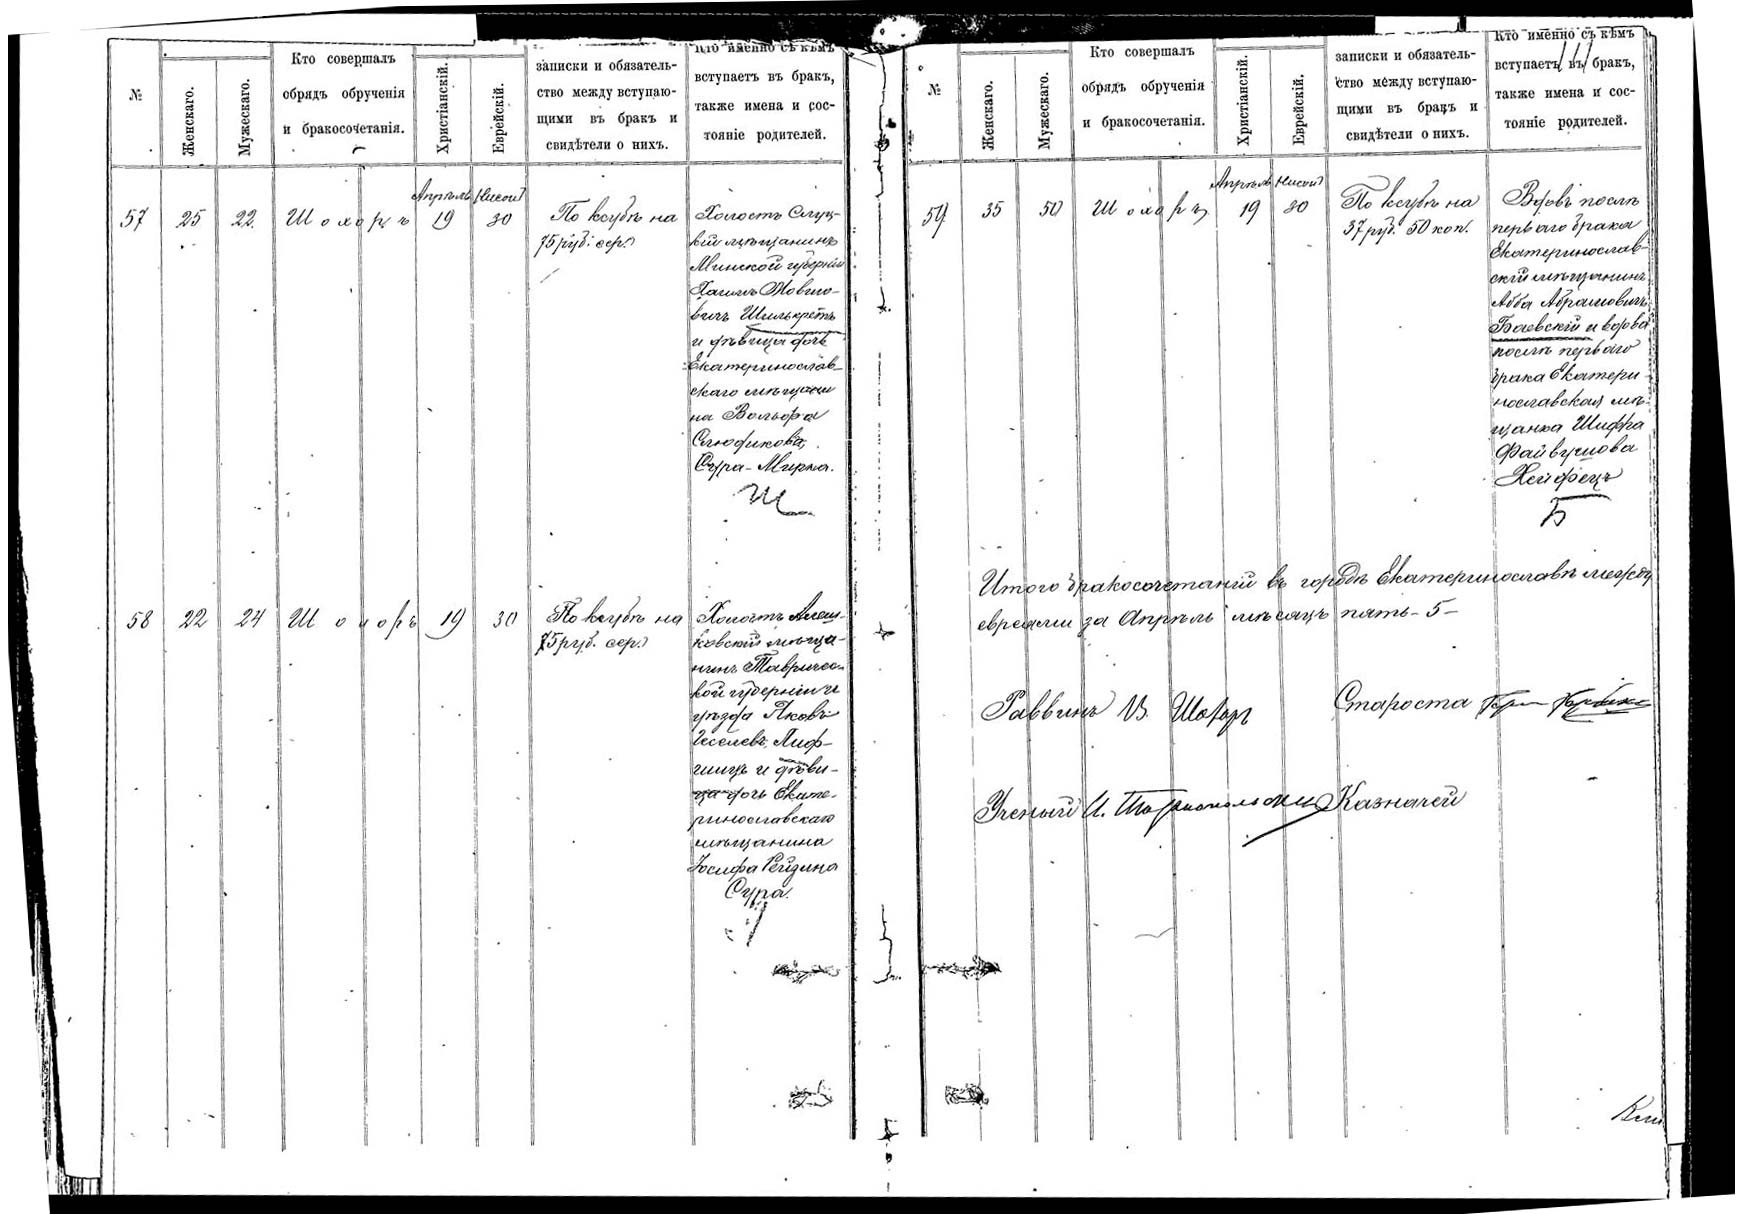 №
Женскаго.
Мужескаго.
Кто совершалъ
обрядъ обрученія
и бракосочетанія.
Христіанскій.
Еврейскій.
записки и обязатель-
ство между вступаю-
щими въ бракъ и
свидѣтели о нихъ.
Кто именно съ кѣмъ
вступаетъ въ бракъ,
также имена и сос-
тояніе родителей.
57
25
22.
Шохоръ
Апрѣль
19
Нисонъ
30
По ксубѣ на
75 руб. сер.
Холостъ Слуц-
кій мѣщанинъ
Минской губерніи
Хаимъ Мовшо-
вичъ Шилькретъ
и дѣвица дочь
Екатеринослав-
скаго мѣщани
на Вольфа
Сындикова,
Сура-Мирка.
Ш
58
22
24
Шохоръ
19
30
По ксубѣ на
75 руб. сер.
Холостъ Алеш-
ковскій мѣща-
нинъ Тавричес-
кой губерніи и
уѣзда Яковъ
Геселевъ Лиф-
шицъ и дѣви-
ца дочь Екате-
ринославскаго
мѣщанина
Іосифа Рейзина
Сура.
№
Женскаго.
Мужескаго.
Кто совершалъ
обрядъ обрученія
и бракосочетанія.
Христіанскій.
Еврейскій.
записки и обязатель-
ство между вступаю-
щими въ бракъ и
свидѣтели о нихъ.
Кто именно съ кѣмъ
вступаетъ въ бракъ,
также имена и сос-
тояніе родителей.
59
35
50
Шохоръ
Апрѣль
19
Нисонъ
30
По ксубѣ на
37 руб. 50 коп.
Вдовъ послѣ
перваго брака
Екатеринослав-
скій мѣщанинъ
Абба Абрамовичъ
Баевскій и вдова
послѣ перваго
брака Екатери-
нославская мѣ-
щанка Шифра
Файвушова
Хейфецъ
Б
Итого бракосочетаній въ городѣ Екатеринославѣ между
евреями за Апрѣль мѣсяцъ пять - 5 -
Раввинъ В. Шохоръ
Староста
Ученый И. Тарнопольскій
Казначей